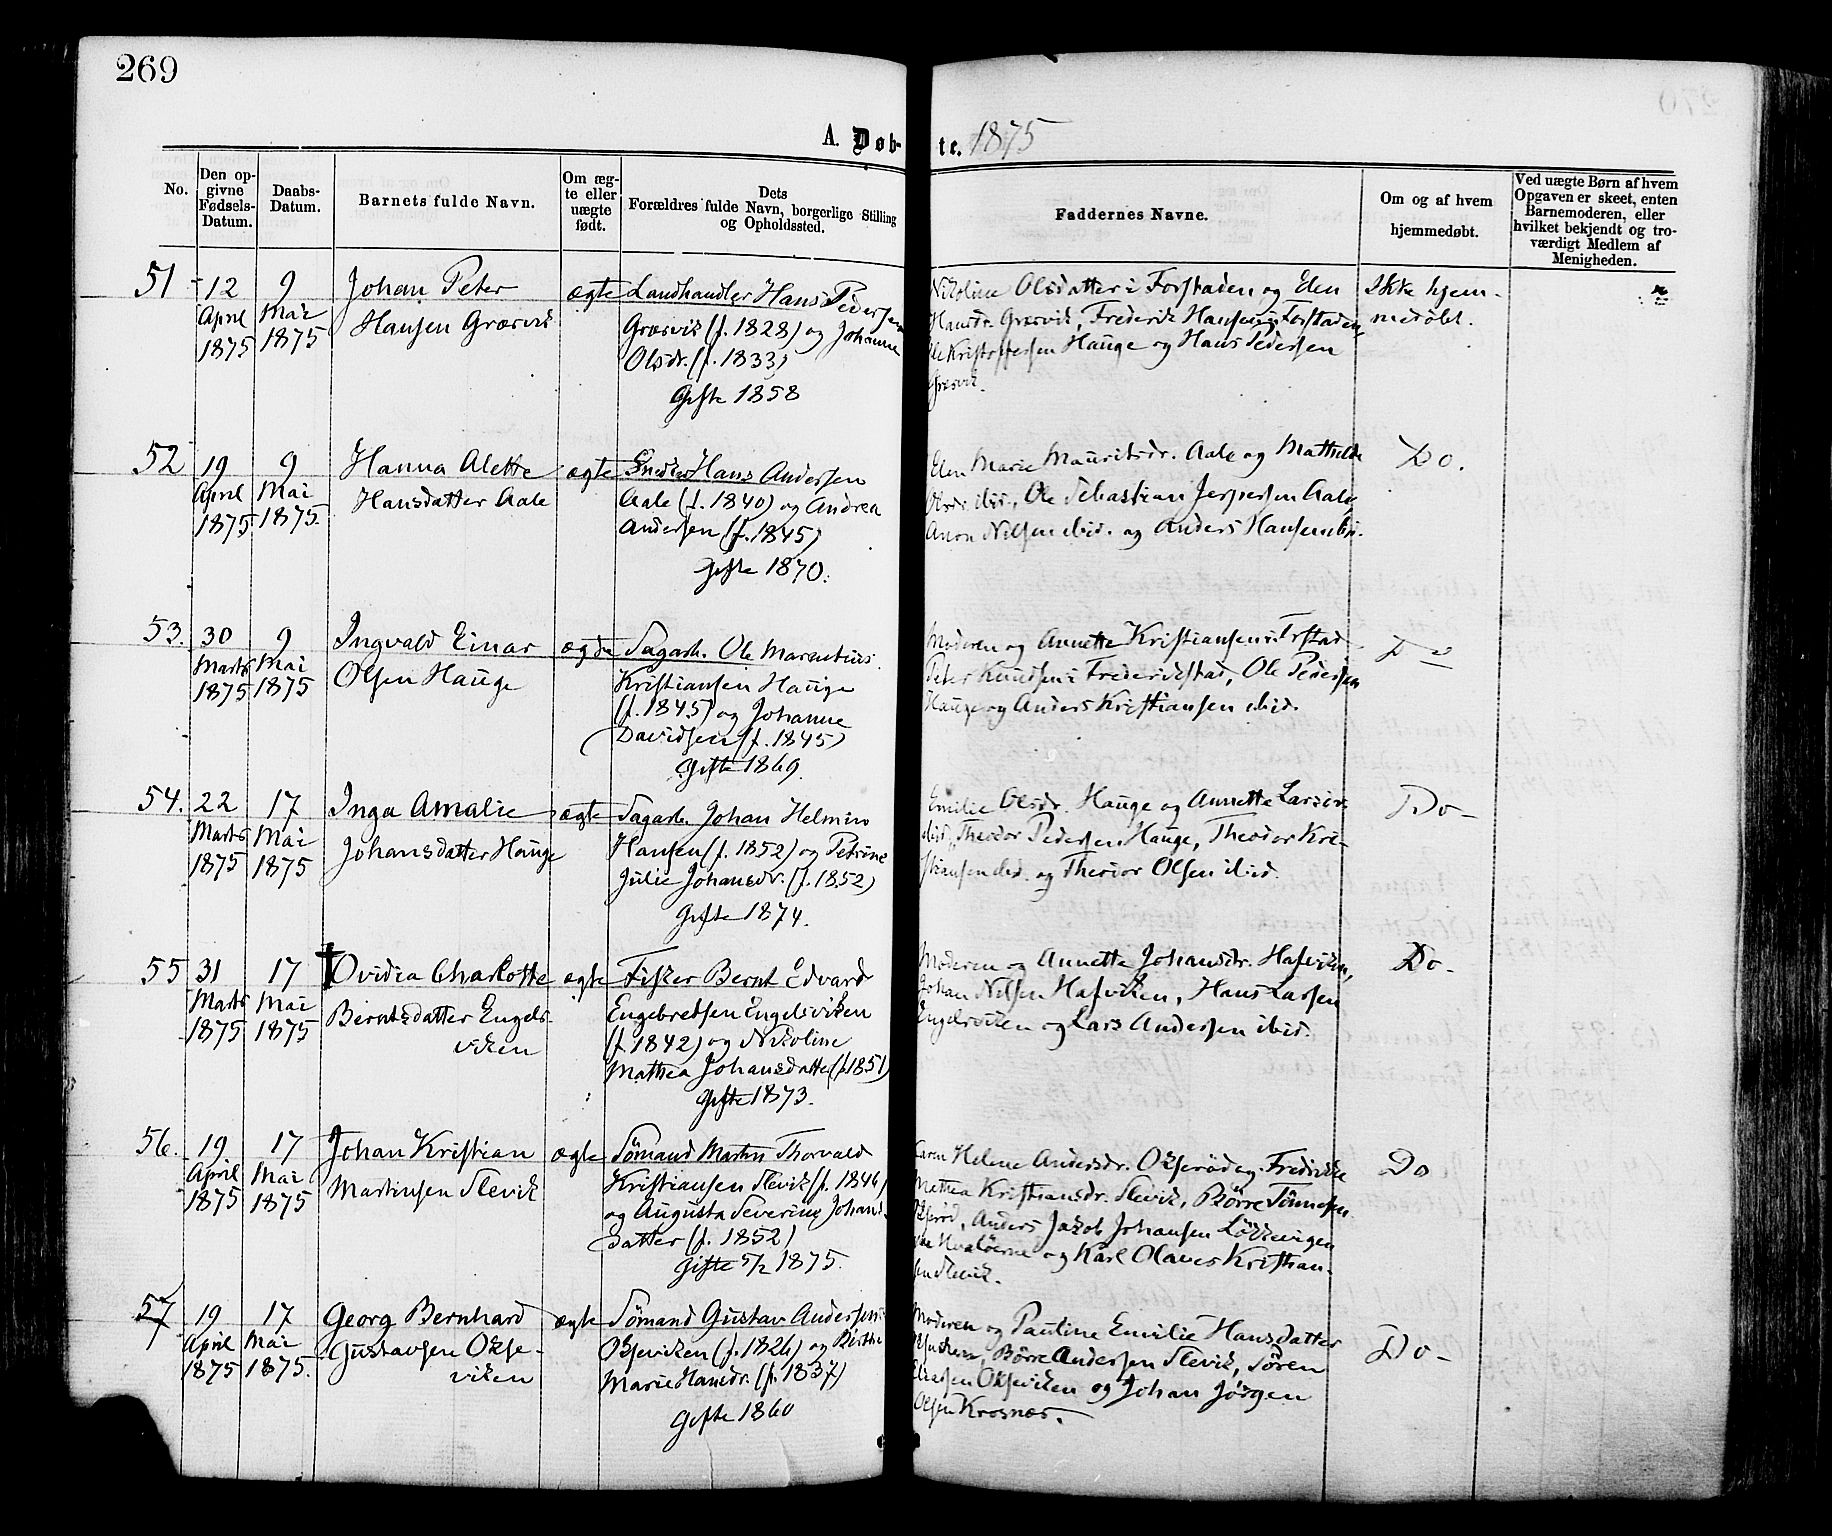 269
A. Døb-
te. 1875
No.
Den op-
givne
Fødsels-
Datum.
Daabs-
Datum.
Barnets fulde Navn.
Om æg-
te eller
uægte
født.
Dets
Forældres fulde Navn, borgerlige Stilling
og Opholdssted.
Faddernes Navne.
Om og af hvem
hjemmedøbt.
Ved uægte Børn af hvem
Opgaven er skeet, enten
Barnemoderen, eller
hvilket bekjendt og tro-
værdigt Medlem af
Menigheden.
51
12
April
1875
9
Mai
1875
Johan Peter
Hansen Græsvik
ægte
Landhandler Hans Pedersen
Græsvik (f. 1828) og Johanne
Olsdr. (f. 1833)
Gifte 1858
Nikoline Olsdatter i Forstaden og Elen
Hansdr. Græsvik, Frederik Hansen i Forstaden,
Ole Kristoffersen Hauge og Hans Pedersen
Græsvik.
Ikke hjem-
medøbt.
52
19
April
1875
9
Mai
1875.
Hanna Alette
Hansdatter Aale
ægte
Hans Andersen
Aale (f. 1840) og Andrea
Andersen (f. 1845)
Gifte 1870.
Elen Marie Mauritsdr. Aale og Mathilde
Olsdr. ibid., Ole Sebastian Jespersen Aale,
Aron Nilsen ibid. og Anders Hansen ibi.
Do.
53.
30
Marts
1875
9
Mai
1875
Ingvald Einar
Olsen Hauge
ægte
Sagarb. Ole Marentius
Kristiansen Hauge
(f. 1845) og Johanne
Davidsen (f. 1845)
Gifte 1869.
Moderen og Annette Kristiansen i Forstad.
Peter Knudsen i Frederikstad, Ole Pedersen
Hauge og Anders Kristiansen ibid.
Do
54.
22
Marts
1875
17
Mai
1875
Inga Amalie
Johansdatter Hauge
ægte
Sagarb. Johan Helmin
Hansen (f. 1852) og Petrine
Julie Johansdr. (f. 1852)
Gifte 1874.
Emilie Olsdr. Hauge og Annette Larsdr.
ibid., Theodor Pedersen Hauge, Theodor Kri-
stiansen ibid. og Theodor Olsen ibid.
Do-
55
31
Marts
1875
17
Mai
1875
† Ovidia Charlotte
Berntsdatter Engels-
viken
ægte
Fisker Bernt Edvard
Engebretsen Engelsviken
(f. 1842) og Nikoline
Mathea Johansdatter (f. 1851)
Gifte 1873.
Moderen og Annette Johansdr. Hafviken,
Johan Nilsen Hafviken, Hans Larsen
Engelsviken og Lars Andersen ibid.
Do-
56.
19
April
1875
17
Mai
1875
Johan Kristian
Martinsen Slevik
ægte
Sømand Martin Thorvald
Kristiansen Slevik (f. 1846)
og Augusta Severine Johans-
datter (f. 1852)
Gifte 5/2 1875.
Karen Helene Andersdr. Okserød og Fredrikke
Mathea Kristiansdr. Slevik, Børre Tønnesen
Okserød, Anders Jakob Johansen Løkkevigen
Hvaløerne og Karl Olaves Kristian-
sen Slevik.
Do
57
19
April
1875
17
Mai
1875.
Georg Bernhard
Gustavsen Okse-
viken
ægte
Sømand Gustav Andersen
Okseviken (f. 1826) og Birthe
Marie Hansdr. (f. 1837)
Gifte 1860
Moderen og Pauline Emilie Hansdatter
Okseviken, Børre Andersen Slevik, Søren
Eliassen Okseviken og Johan Jørgen
Olsen Krosnæs.
Do-